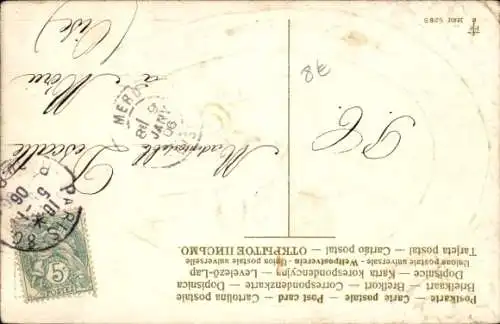 Postkarte — Carte postale — Post card — Cartolina postale
Briefkaart — Brevkort — Correspondenzkarte — Dopisnica
Dopisnice — Karta korespondencyjna — Levelező-Lap
Union postale universelle - Weltpostverein - Union postale universelle
Tarjeta postal — Cartão postal — ОТКРЫТОЕ ПИСЬМО
5
PARIS
06
MERU
JANV
06
Mademoiselle
à Méru
(Oise)
P.C.
8€
5285